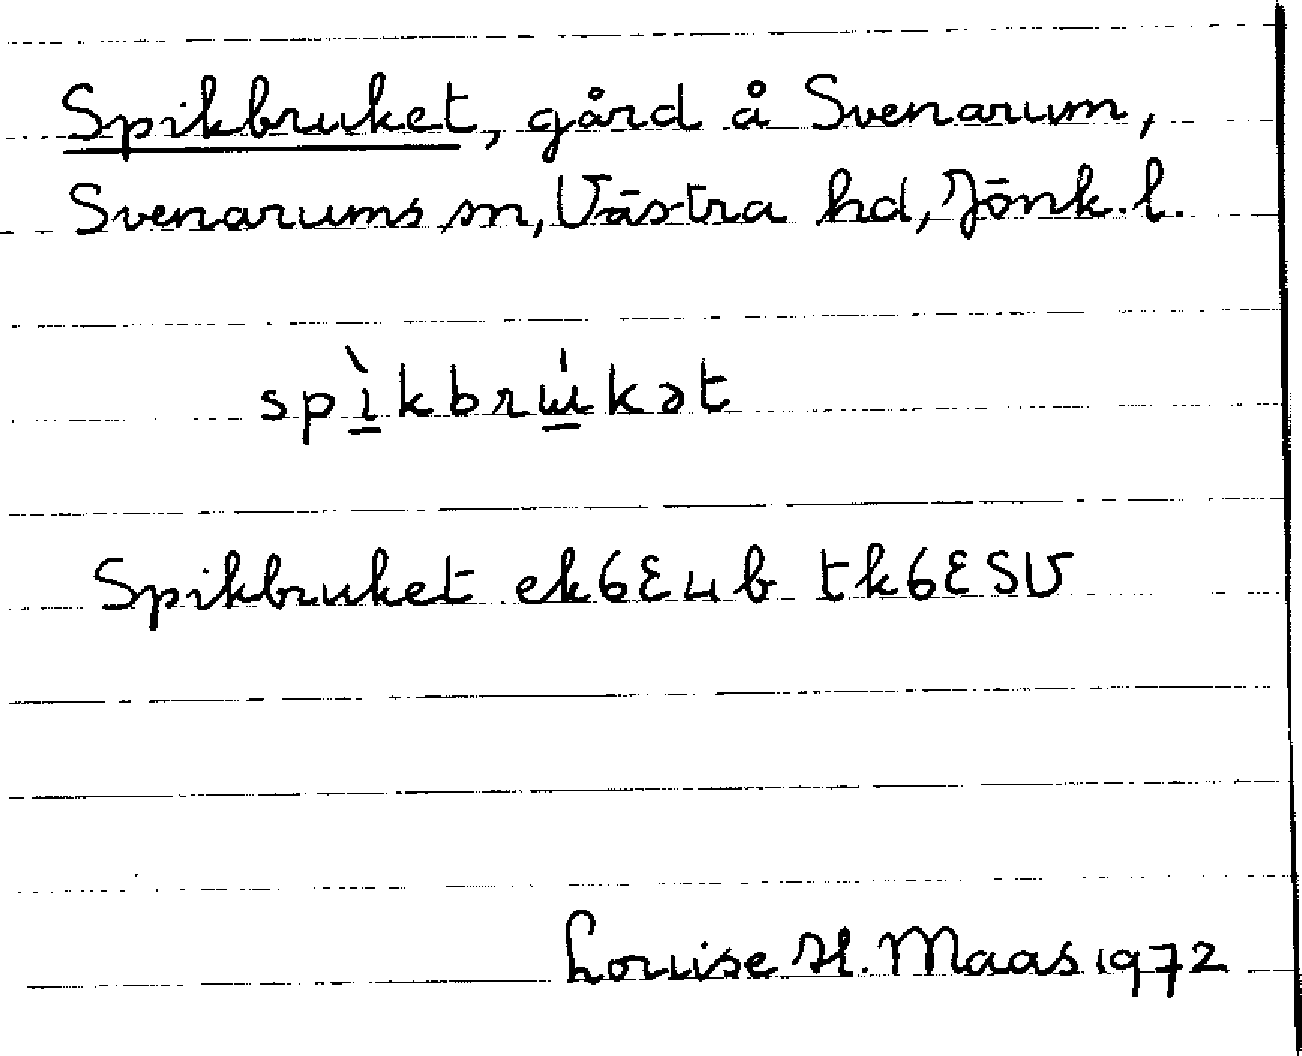 Spikbruket, gård å Svenarum,
Svenarums sn, Västra hd, Jönk. l.
spìkbrɯ́kət
Spikbruket ek 6E4b tk 6ESV
Louise H. Maas 1972